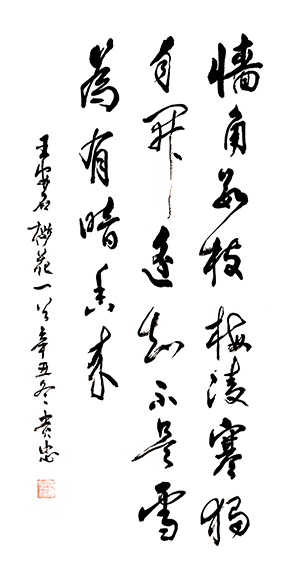 墻角数枝梅凌寒獨
自開遥知不是雪
為有暗香來
王安石梅花一首辛丑冬贵忠